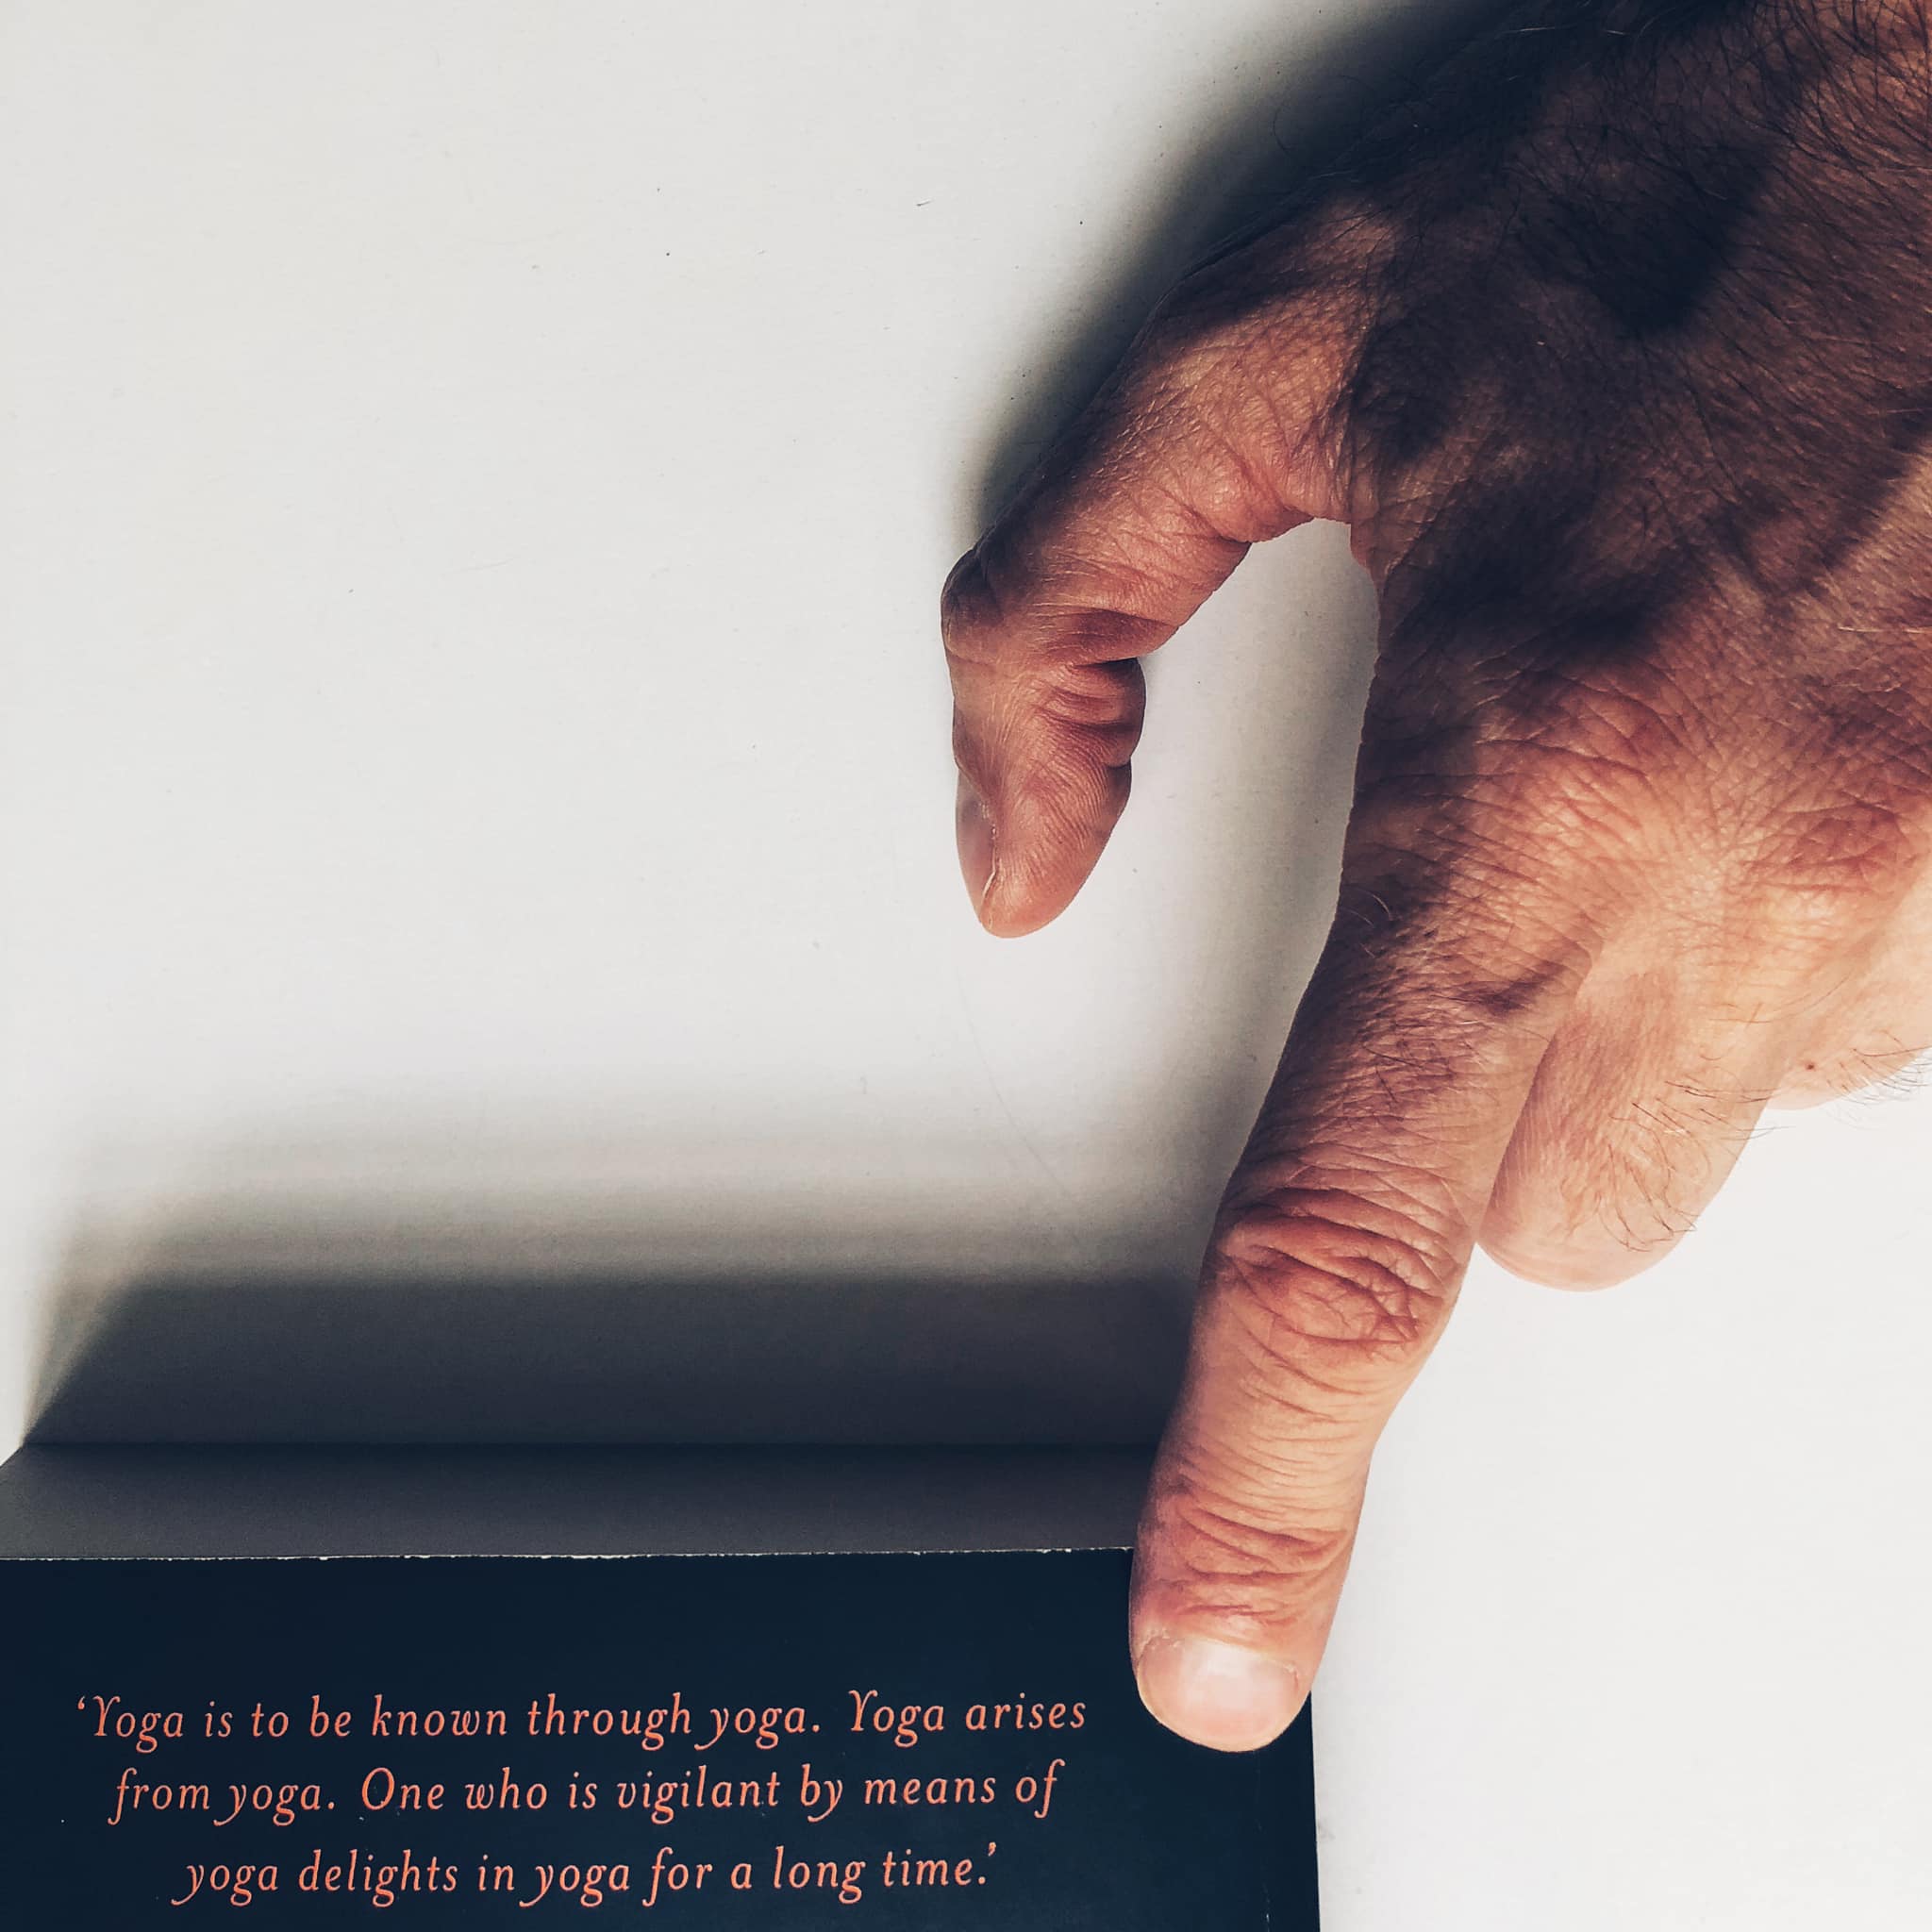 ‘Yoga is to be known through yoga. Yoga arises
from yoga. One who is vigilant by means of
yoga delights in yoga for a long time.’